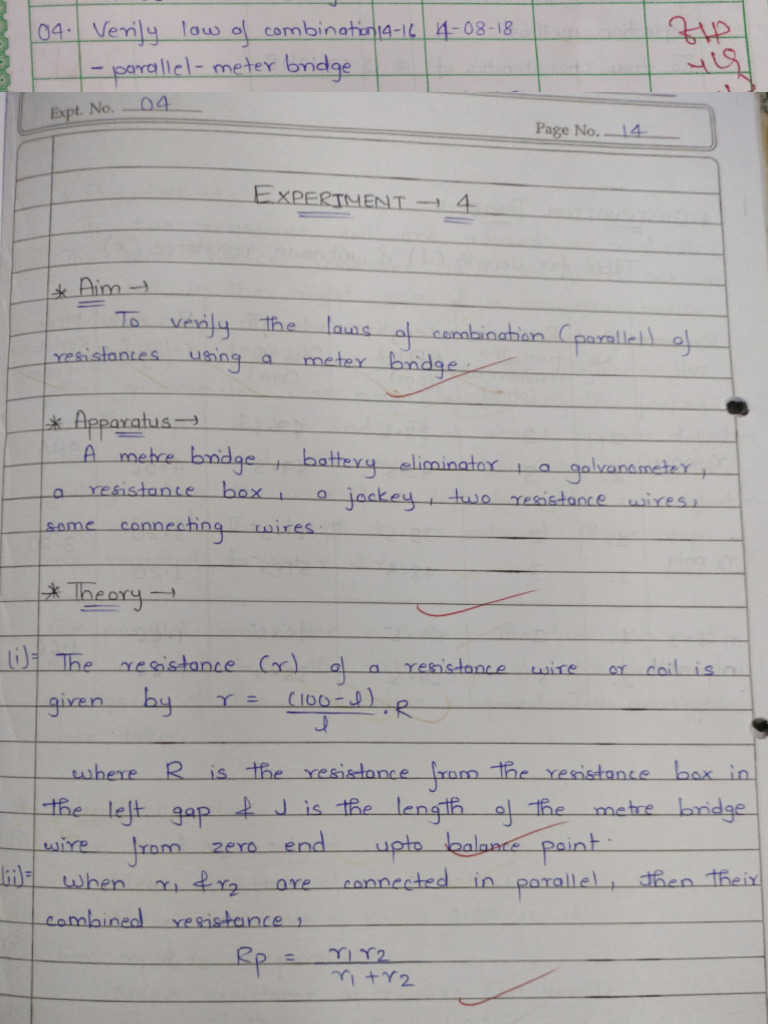 04. Verify law of combination 14-16 14-08-18
- parallel - meter bridge
Expt. No. 04
Page No. 14
EXPERIMENT → 4
* Aim →
To verify the laws of combination (parallel) of
resistances using a meter bridge.
* Apparatus →
A metre bridge, battery eliminator, a galvanometer,
a resistance box, a jockey, two resistance wires,
some connecting wires.
* Theory →
(i)= The resistance (r) of a resistance wire or coil is
given by r = (100-l)/l . R
where R is the resistance from the resistance box in
the left gap & l is the length of the metre bridge
wire from zero end upto balance point.
(ii)= when r1 & r2 are connected in parallel, then their
combined resistance,
Rp = r1 r2 / r1 + r2